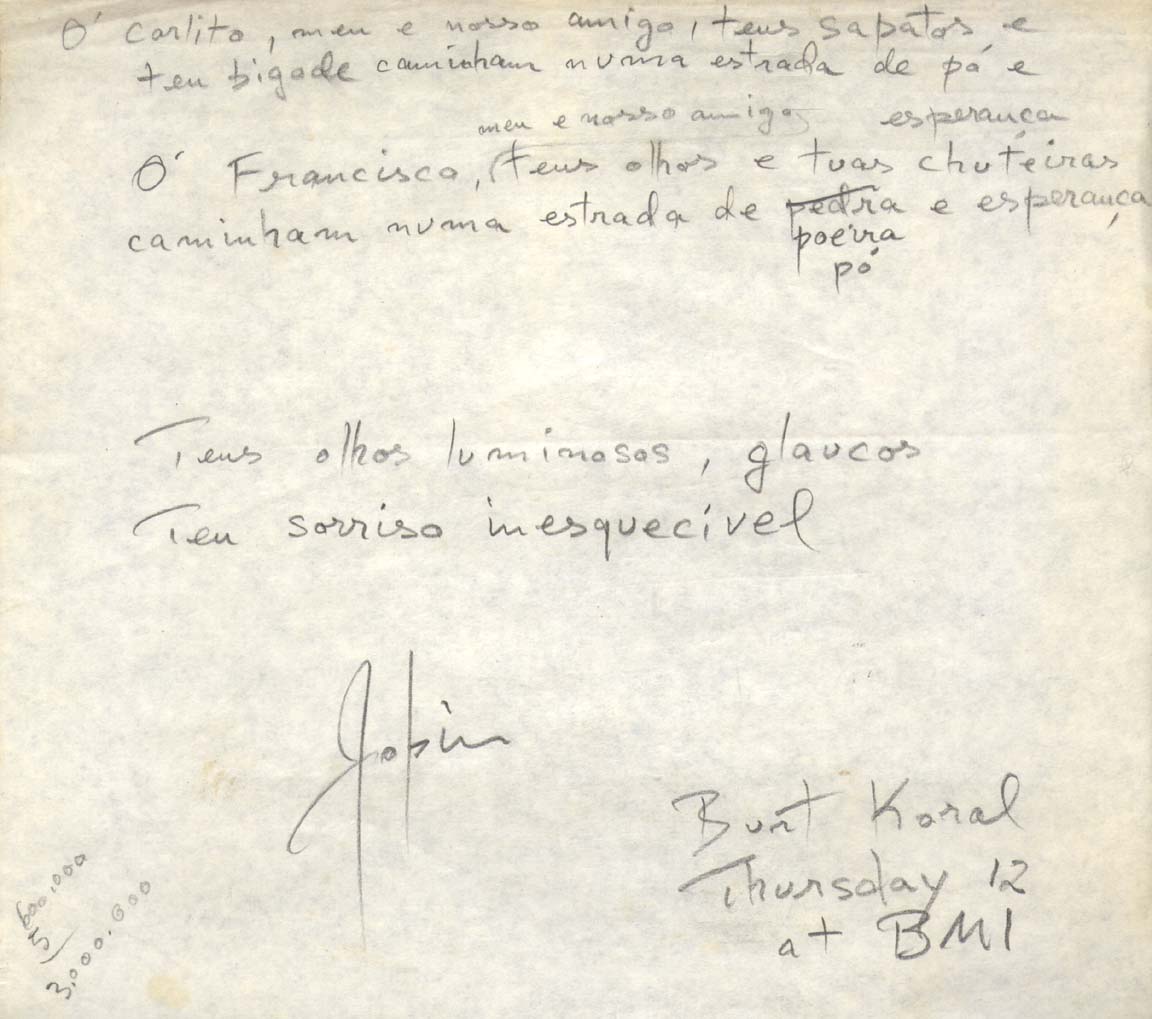 Ó Carlito, meu e nosso amigo, teus sapatos e
teu bigode caminham numa estrada de pó e
meu e nosso amigo, esperança
Ó Francisco, teus olhos e tuas chuteiras
caminham numa estrada de pedra e esperança
poeira
pó
Teus olhos luminosos, glaucos
Teu sorriso inesquecível
Jobim
Burt Koral
Thursday 12
at BMI
600.000
5
3.000.000